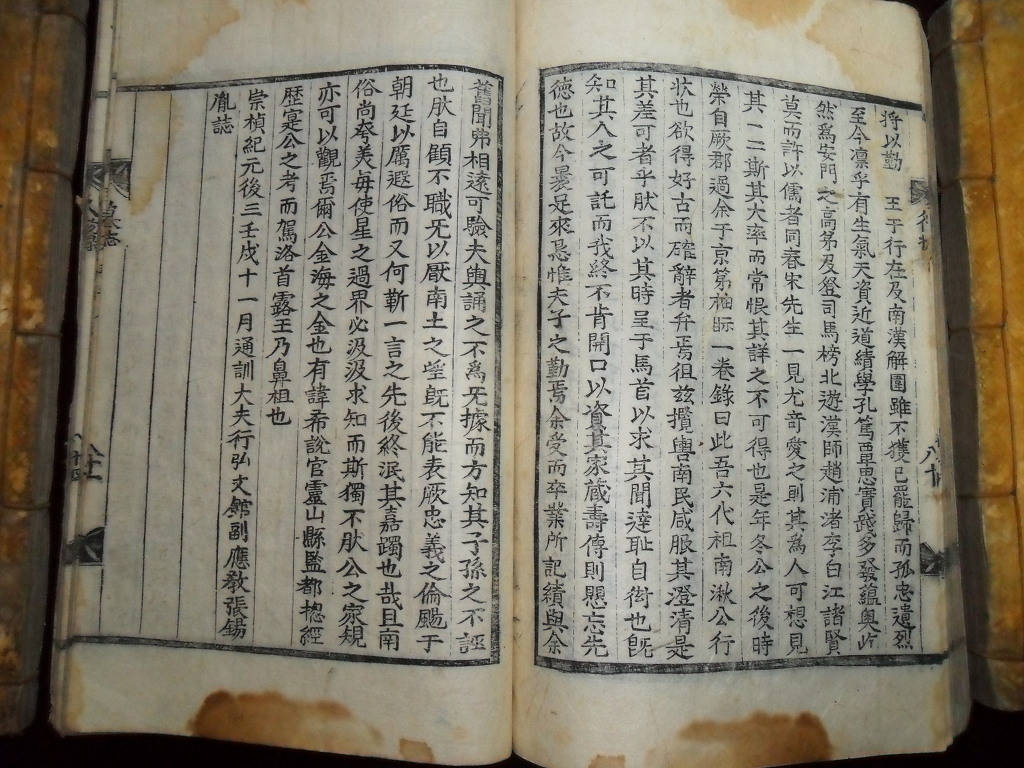 將以勤 王于行在及南漢解圍雖不獲已罷歸而孤忠遺烈
至今凛乎有生氣天資近道績學孔篤覃思實踐多發蘊奧
然爲安門之高弟及登司馬榜北遊漢師趙浦渚李白江諸賢
莫而許以儒者同春宋先生一見尤奇愛之則其爲人可想見
其一二斯其大率而常恨其詳之不可得也是年冬公之後時
榮自厥郡過余于京第袖眎一卷錄曰此吾六代祖南湫公行
狀也欲得好古而確辭者弁焉徂玆攬轡南民咸服其澄清是
其差可者乎肰不以其時呈于馬首以求其聞達耻自衒也旣
知其人之可託而我終不肯開口以資其家蔵壽傳則愳忘先
徳也故今曩足來懇惟夫子之勤焉余受而卒業所記績與余
舊聞弗相遠可驗夫輿誦之不爲无據而方知其子孫之不誣
也肰自顧不職无以厭南土之望旣不能表厥忠義之倫颺于
朝廷以厲遐俗而又何靳一言之先後終泯其嘉躅也哉且南
俗尚奉美每使星之過界必汲汲求知而斯獨不肰公之家規
亦可以觀焉爾公金海之金也有諱希說官靈山縣監都摠經
歴寔公之考而駕洛首露王乃鼻祖也
崇禎紀元後三壬戌十一月通訓大夫行弘文館副應敎張錫
胤誌